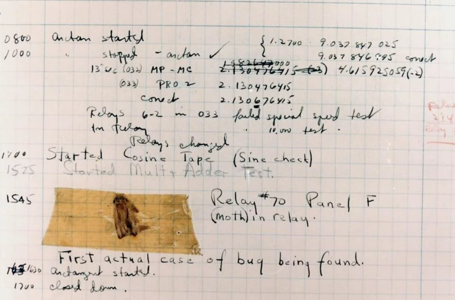 0800 Arctan started { 1.2700 9.037 847 025
1000 " stopped - arctan ✓ 9.037 846 995 correct
13"UC (032) MP - MC 2.130476415 (-3) 4.615925059(-2)
(033) PRO 2 2.130476415
correct 2.130676415
Relays 6-2 in 033 failed special speed test
In Relay " 10,000 test .
Relays changed
1700 Started Cosine Tape (Sine check)
1525 Started Mult+Adder Test.
1545 Relay #70 Panel F
(moth) in relay.
First actual case of bug being found.
1630 Arctangent started.
1700 closed down .